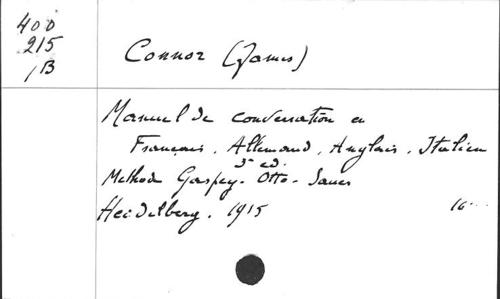 400
215
1B
Connor (James)
Manuel de conversation en
Français. Allemand. Anglais. Italien
3e ed.
Method Gaspey-Otto-Sauer
Heidelberg. 1915 16